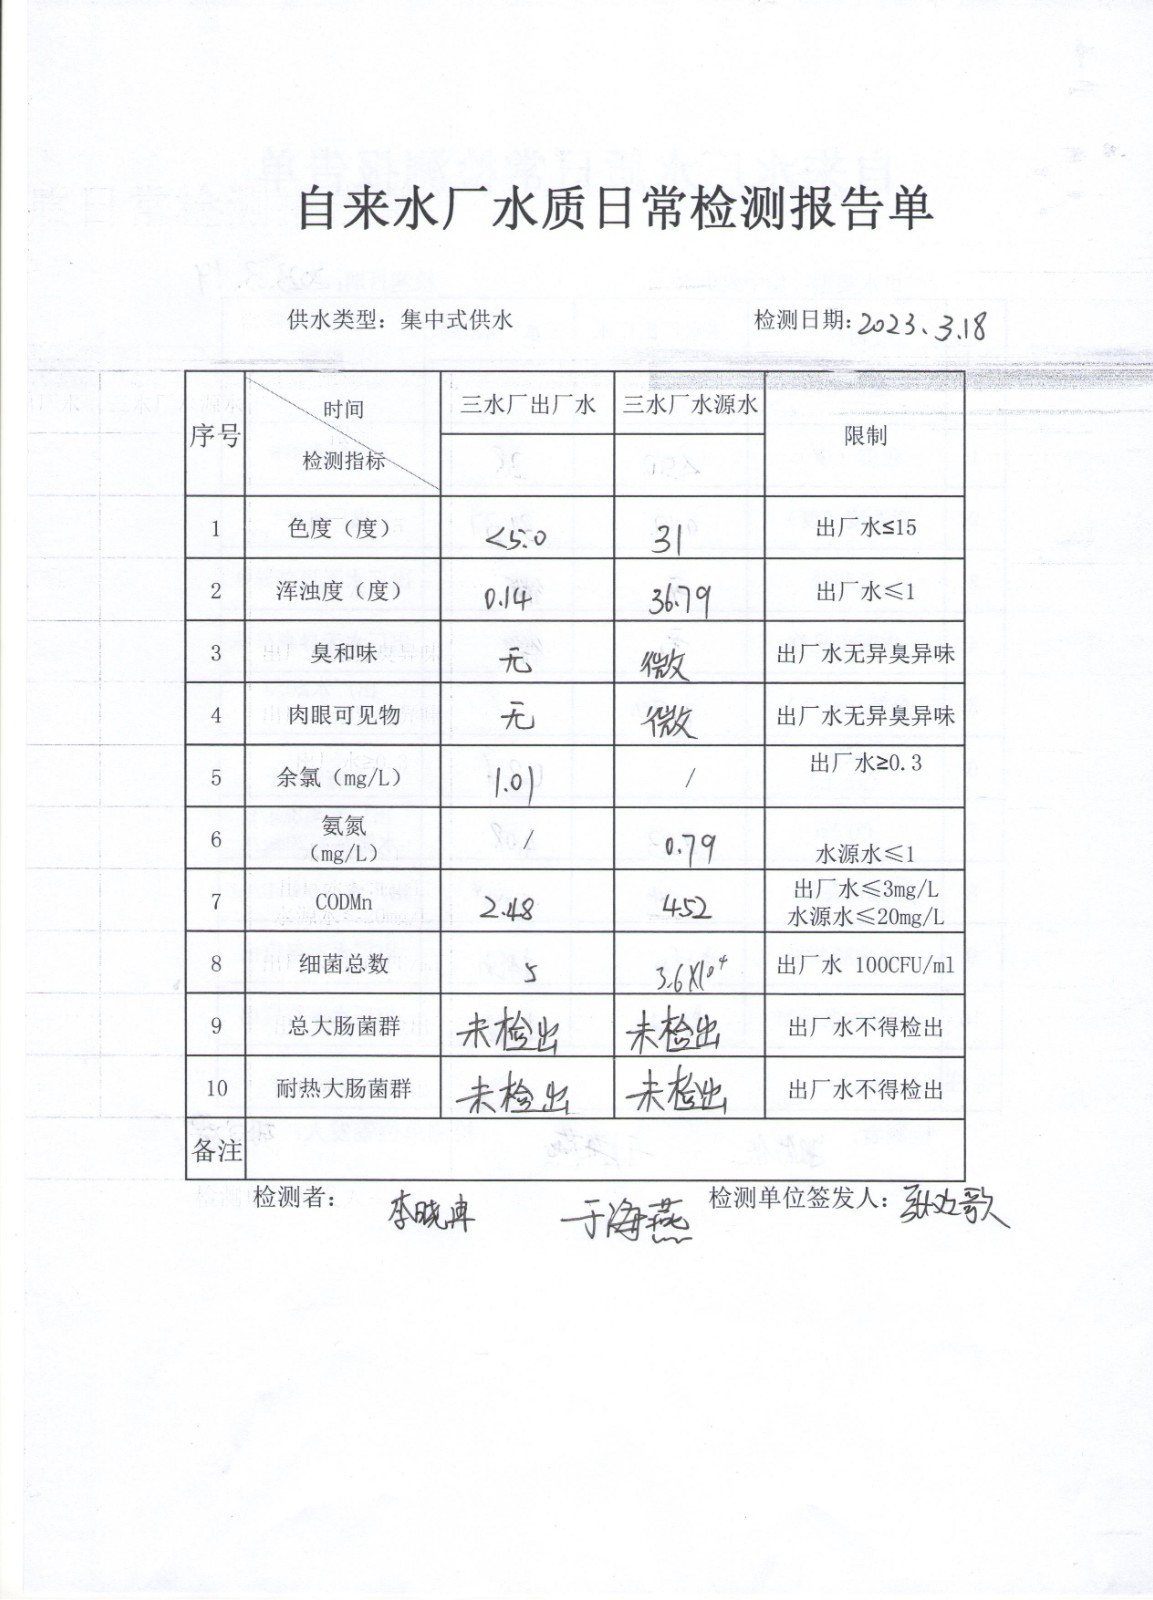 自来水厂水质日常检测报告单
供水类型：集中式供水 检测日期：2023.3.18
序号 时间 检测指标 三水厂出厂水 三水厂水源水 限制
1 色度（度） <5.0 31 出厂水≤15
2 浑浊度（度） 0.14 36.79 出厂水≤1
3 臭和味 无 微 出厂水无异臭异味
4 肉眼可见物 无 微 出厂水无异臭异味
5 余氯（mg/L） 1.01 / 出厂水≥0.3
6 氨氮 / 0.79 水源水≤1
（mg/L）
7 CODMn 2.48 4.52 出厂水≤3mg/L
水源水≤20mg/L
8 细菌总数 5 3.6X10⁴ 出厂水 100CFU/ml
9 总大肠菌群 未检出 未检出 出厂水不得检出
10 耐热大肠菌群 未检出 未检出 出厂水不得检出
备注
检测者： 李晓 于海燕 检测单位签发人： 歌